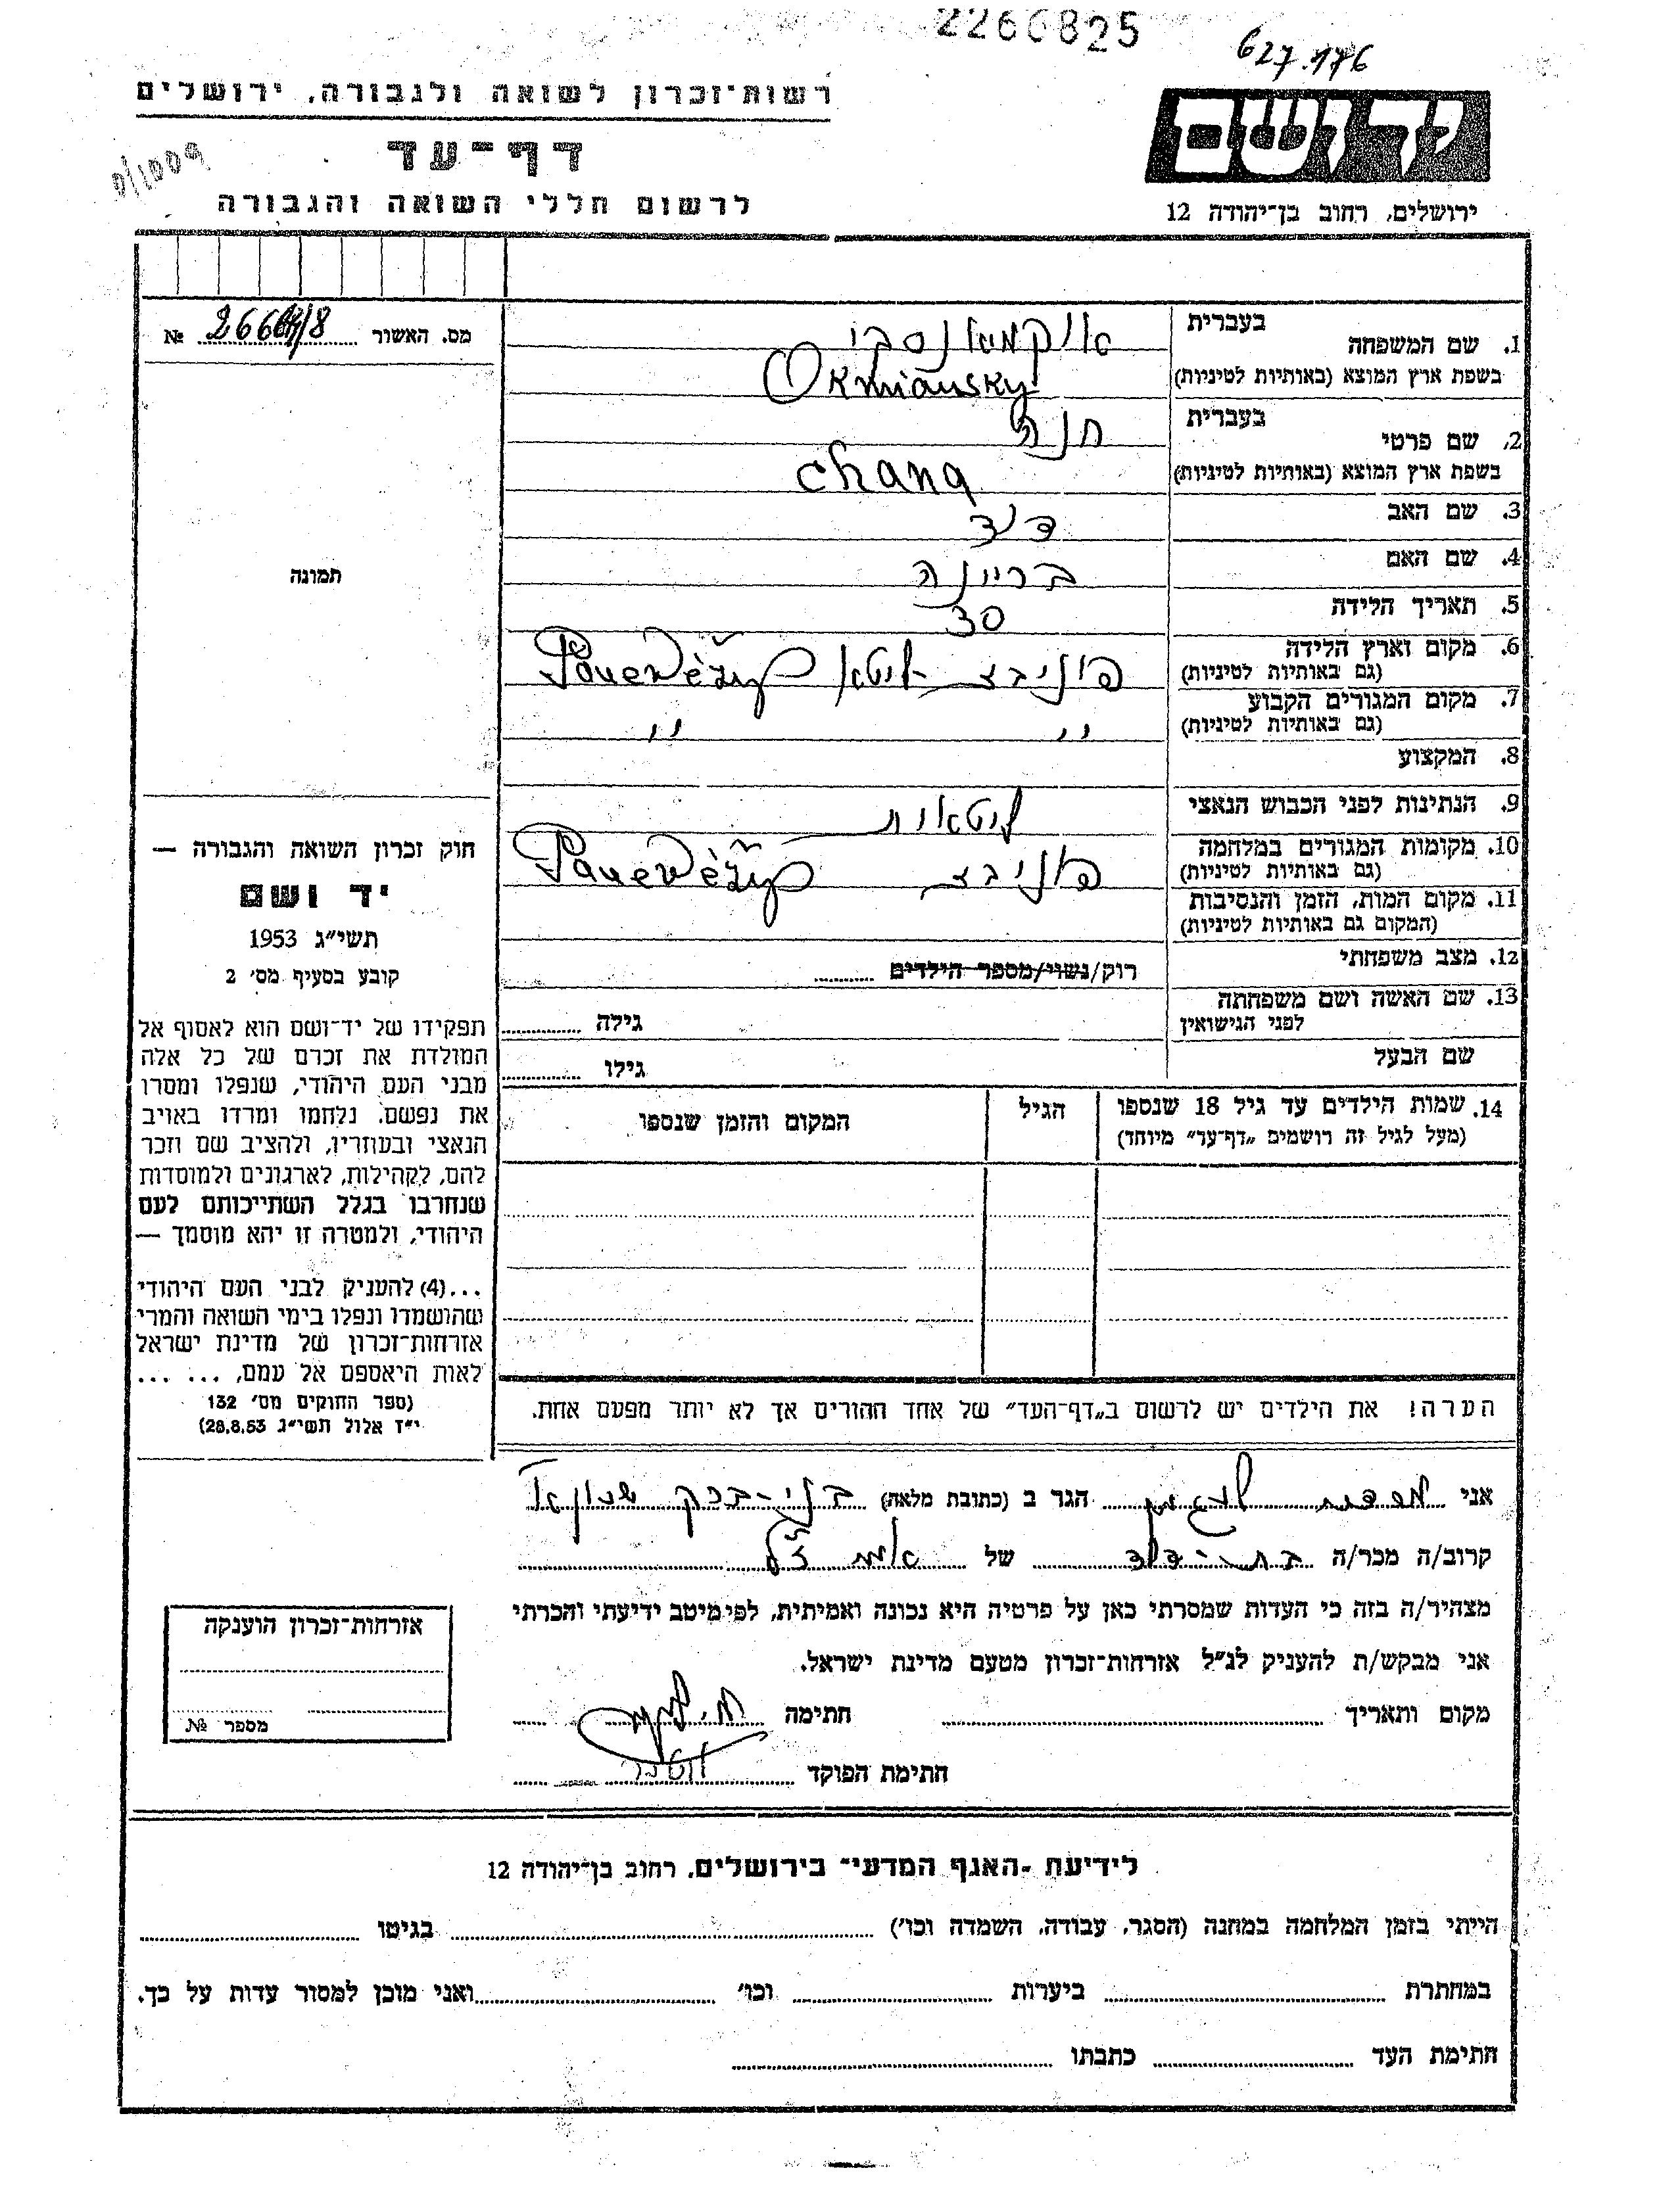 2266825
627.176
רשות־זכרון לשואה ולגבורה, ירושלים
דף־עד
לרשום חללי השואה והגבורה
יד ושם
ירושלים, רחוב בן־יהודה 12
מס. האשור № /8
1. שם המשפחה בעברית אוקמיאנסקי
בשפת ארץ המוצא (באותיות לטיניות) Okmiansky
2. שם פרטי בעברית חנה
בשפת ארץ המוצא (באותיות לטיניות) chana
3. שם האב דוד
4. שם האם
5. תאריך הלידה 30
6. מקום וארץ הלידה (גם באותיות לטיניות) פוניבז ליטא
7. מקום המגורים הקבוע (גם באותיות לטיניות) " "
8. המקצוע
9. הנתינות לפני הכבוש הנאצי ליטאית
10. מקומות המגורים במלחמה (גם באותיות לטיניות) פוניבז
11. מקום המות, הזמן והנסיבות (המקום גם באותיות לטיניות)
12. מצב משפחתי רוק/נשוי/מספר הילדים
13. שם האשה ושם משפחתה לפני הנישואין גילה
שם הבעל גילו
14. שמות הילדים עד גיל 18 שנספו
(מעל לגיל זה רושמים „דף־עד" מיוחד)
הגיל
המקום והזמן שנספו
תמונה
חוק זכרון השואה והגבורה —
יד ושם
תשי״ג 1953
קובע בסעיף מס׳ 2
תפקידו של יד־ושם הוא לאסוף אל
המולדת את זכרם של כל אלה
מבני העם היהודי, שנפלו ומסרו
את נפשם, נלחמו ומרדו באויב
הנאצי ובעוזריו, ולהציב שם וזכר
להם, לקהילות, לארגונים ולמוסדות
שנחרבו בגלל השתייכותם לעם
היהודי, ולמטרה זו יהא מוסמך —
...(4) להעניק לבני העם היהודי
שהושמדו ונפלו בימי השואה והמרי
אזרחות־זכרון של מדינת ישראל
לאות היאספם אל עמם, ... ...
(ספר החוקים מס׳ 132
י״ז אלול תשי״ג 28.8.53)
הערה! את הילדים יש לרשום ב„דף־העד" של אחד ההורים אך לא יותר מפעם אחת.
אני הגר ב (כתובת מלאה) בני-ברק
קרוב/ה מכר/ה בת-דוד של
מצהיר/ה בזה כי העדות שמסרתי כאן על פרטיה היא נכונה ואמיתית, לפי מיטב ידיעתי והכרתי
אני מבקש/ת להעניק לנ״ל אזרחות־זכרון מטעם מדינת ישראל.
מקום ותאריך חתימה
חתימת הפוקד
אזרחות־זכרון הוענקה
מספר №
לידיעת „האגף המדעי״ בירושלים, רחוב בן־יהודה 12
הייתי בזמן המלחמה במחנה (הסגר, עבודה, השמדה וכו׳) בגיטו
במחתרת ביערות וכו׳ ואני מוכן למסור עדות על כך.
חתימת העד כתבתו